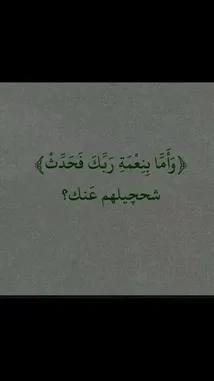 ﴿وَأَمَّا بِنِعْمَةِ رَبِّكَ فَحَدِّثْ﴾
شحچيلهم عَنك؟